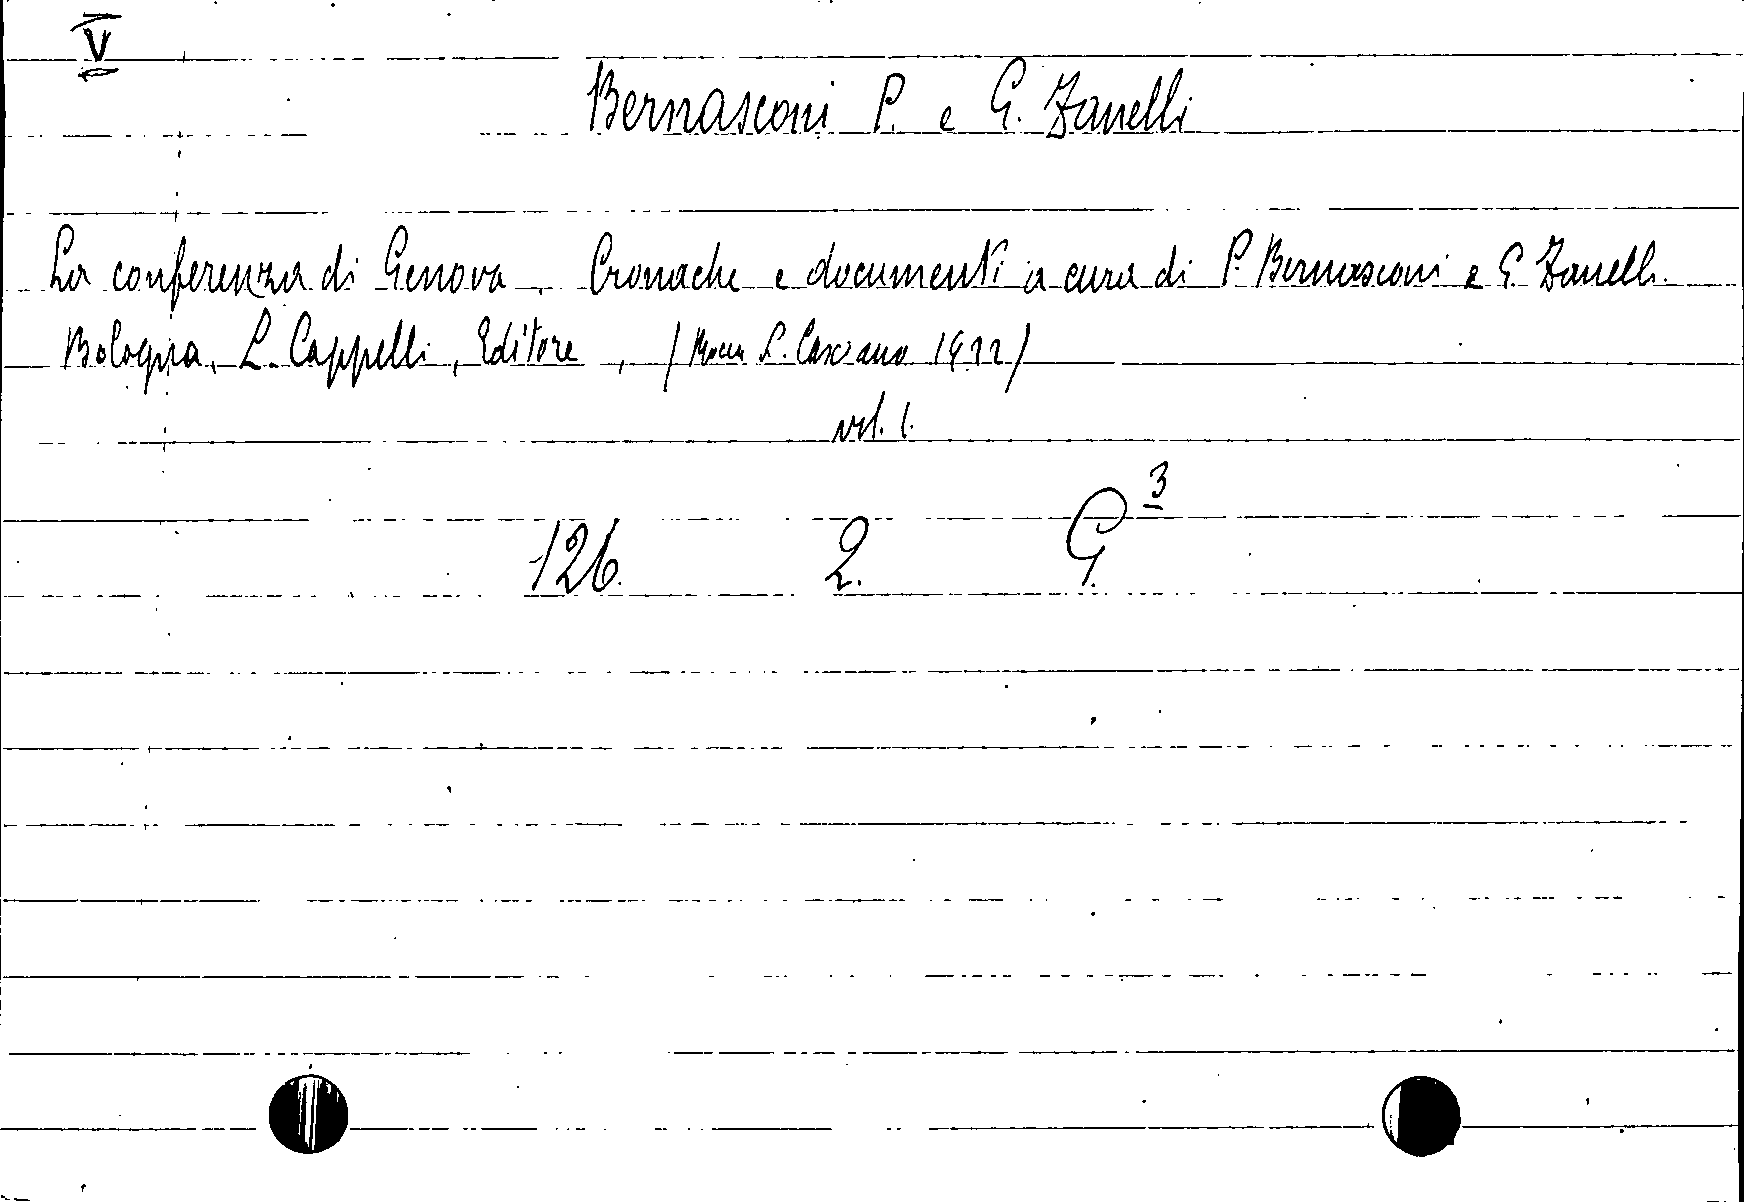 V
Bernasconi P. e G. Zanelli
La conferenza di Genova. Cronache e documenti a cura di P. Bernasconi e G. Zanelli.
Bologna, L. Cappelli, Editore, (Rocca S. Casciano 1922)
vol. 1.
126. 2. G.³